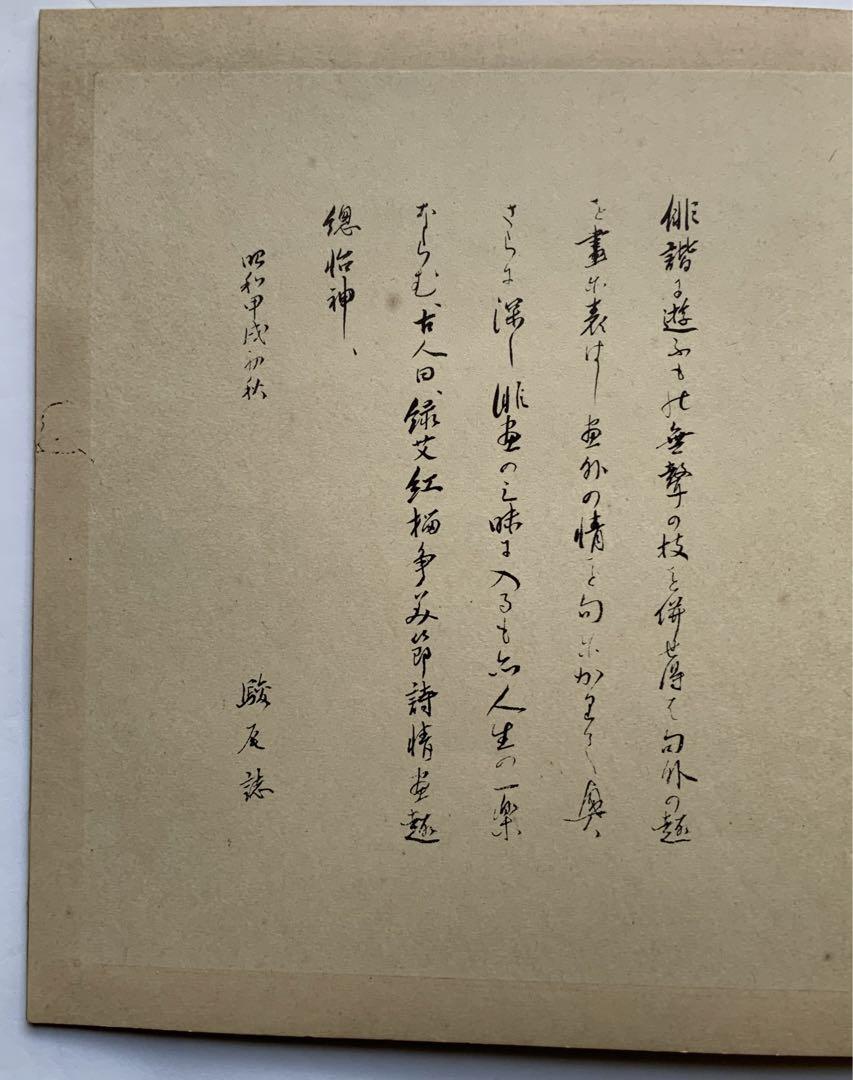 俳諧に遊ふもの無聲の技を併せ得は句外の趣
を畫に表はし画外の情を句にかりて興
さらに深し俳画の三昧に入るも亦人生の一楽
ならむ、古人曰、緑艾紅榴争美節詩情画趣
總怡神、
昭和甲戌初秋
駿辰誌